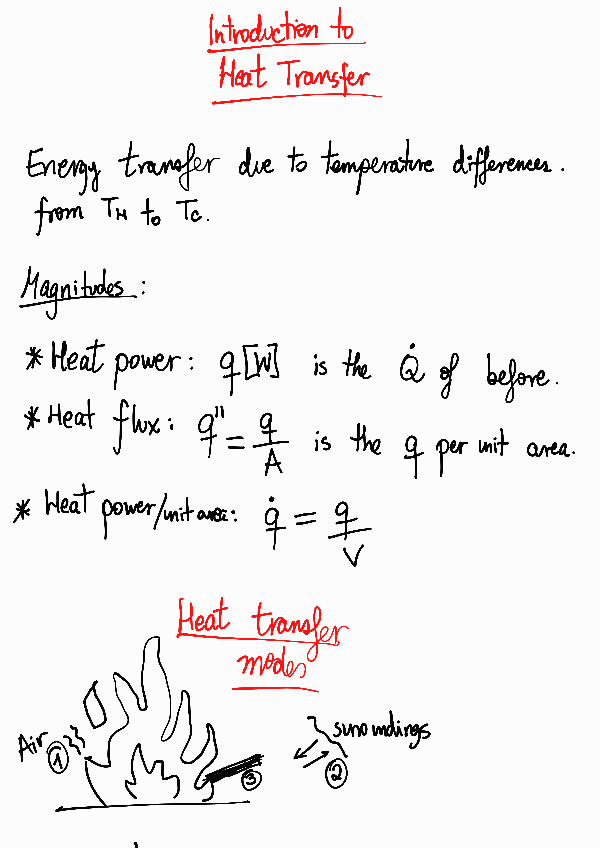 Introduction to
Heat Transfer
Energy transfer due to temperature differences.
from TH to Tc.
Magnitudes:
* Heat power: q [W] is the Q̇ of before.
* Heat flux: q'' = q/A is the q per unit area.
* Heat power/unit area: q̇ = q/V
Heat transfer
modes
Air ① ③ ② surroundings